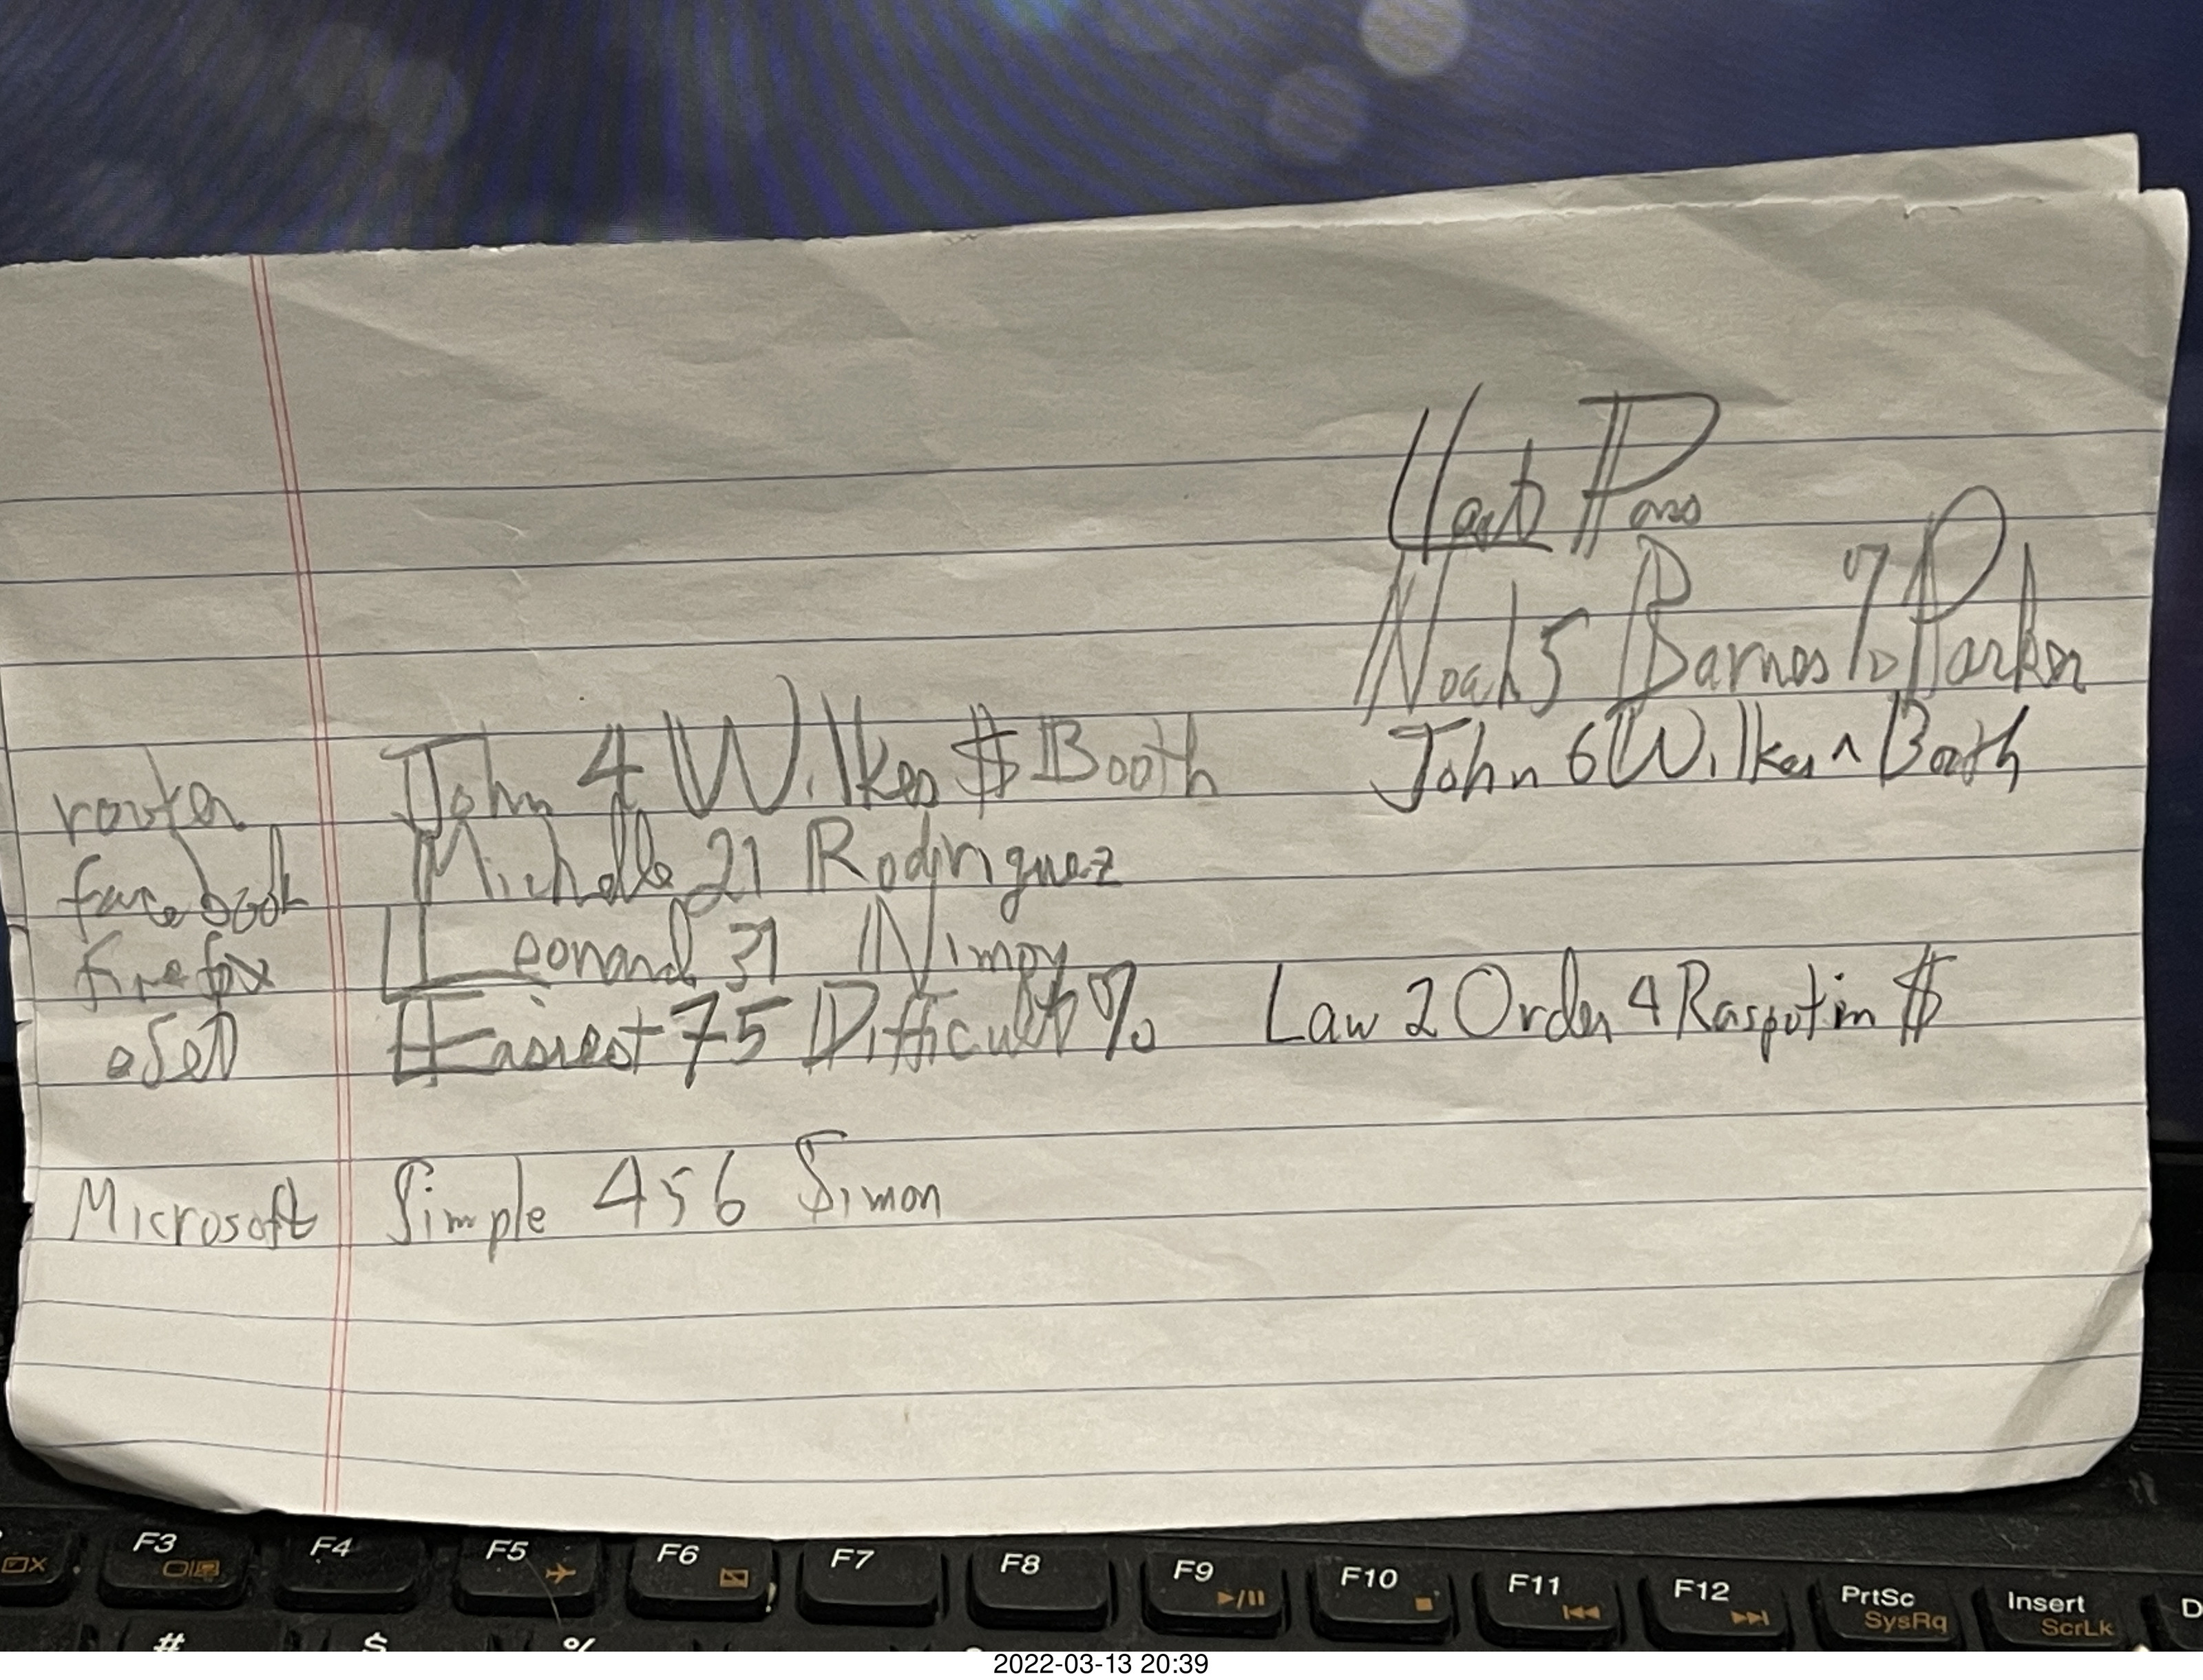 Last Pass
Noah5 Barnes % Parker
router John 4 Wilkes $ Booth John 6 Wilkes ^ Booth
facebook Michelle 21 Rodriguez
firefox Leonard 31 Nimoy
eSeT Easiest 75 Difficult % Law 2 Order 4 Rasputin $
Microsoft Simple 456 Simon
F3 F4 F5 F6 F7 F8 F9 F10 F11 F12 PrtSc Insert D
SysRq ScrLk
# $ %
2022-03-13 20:39